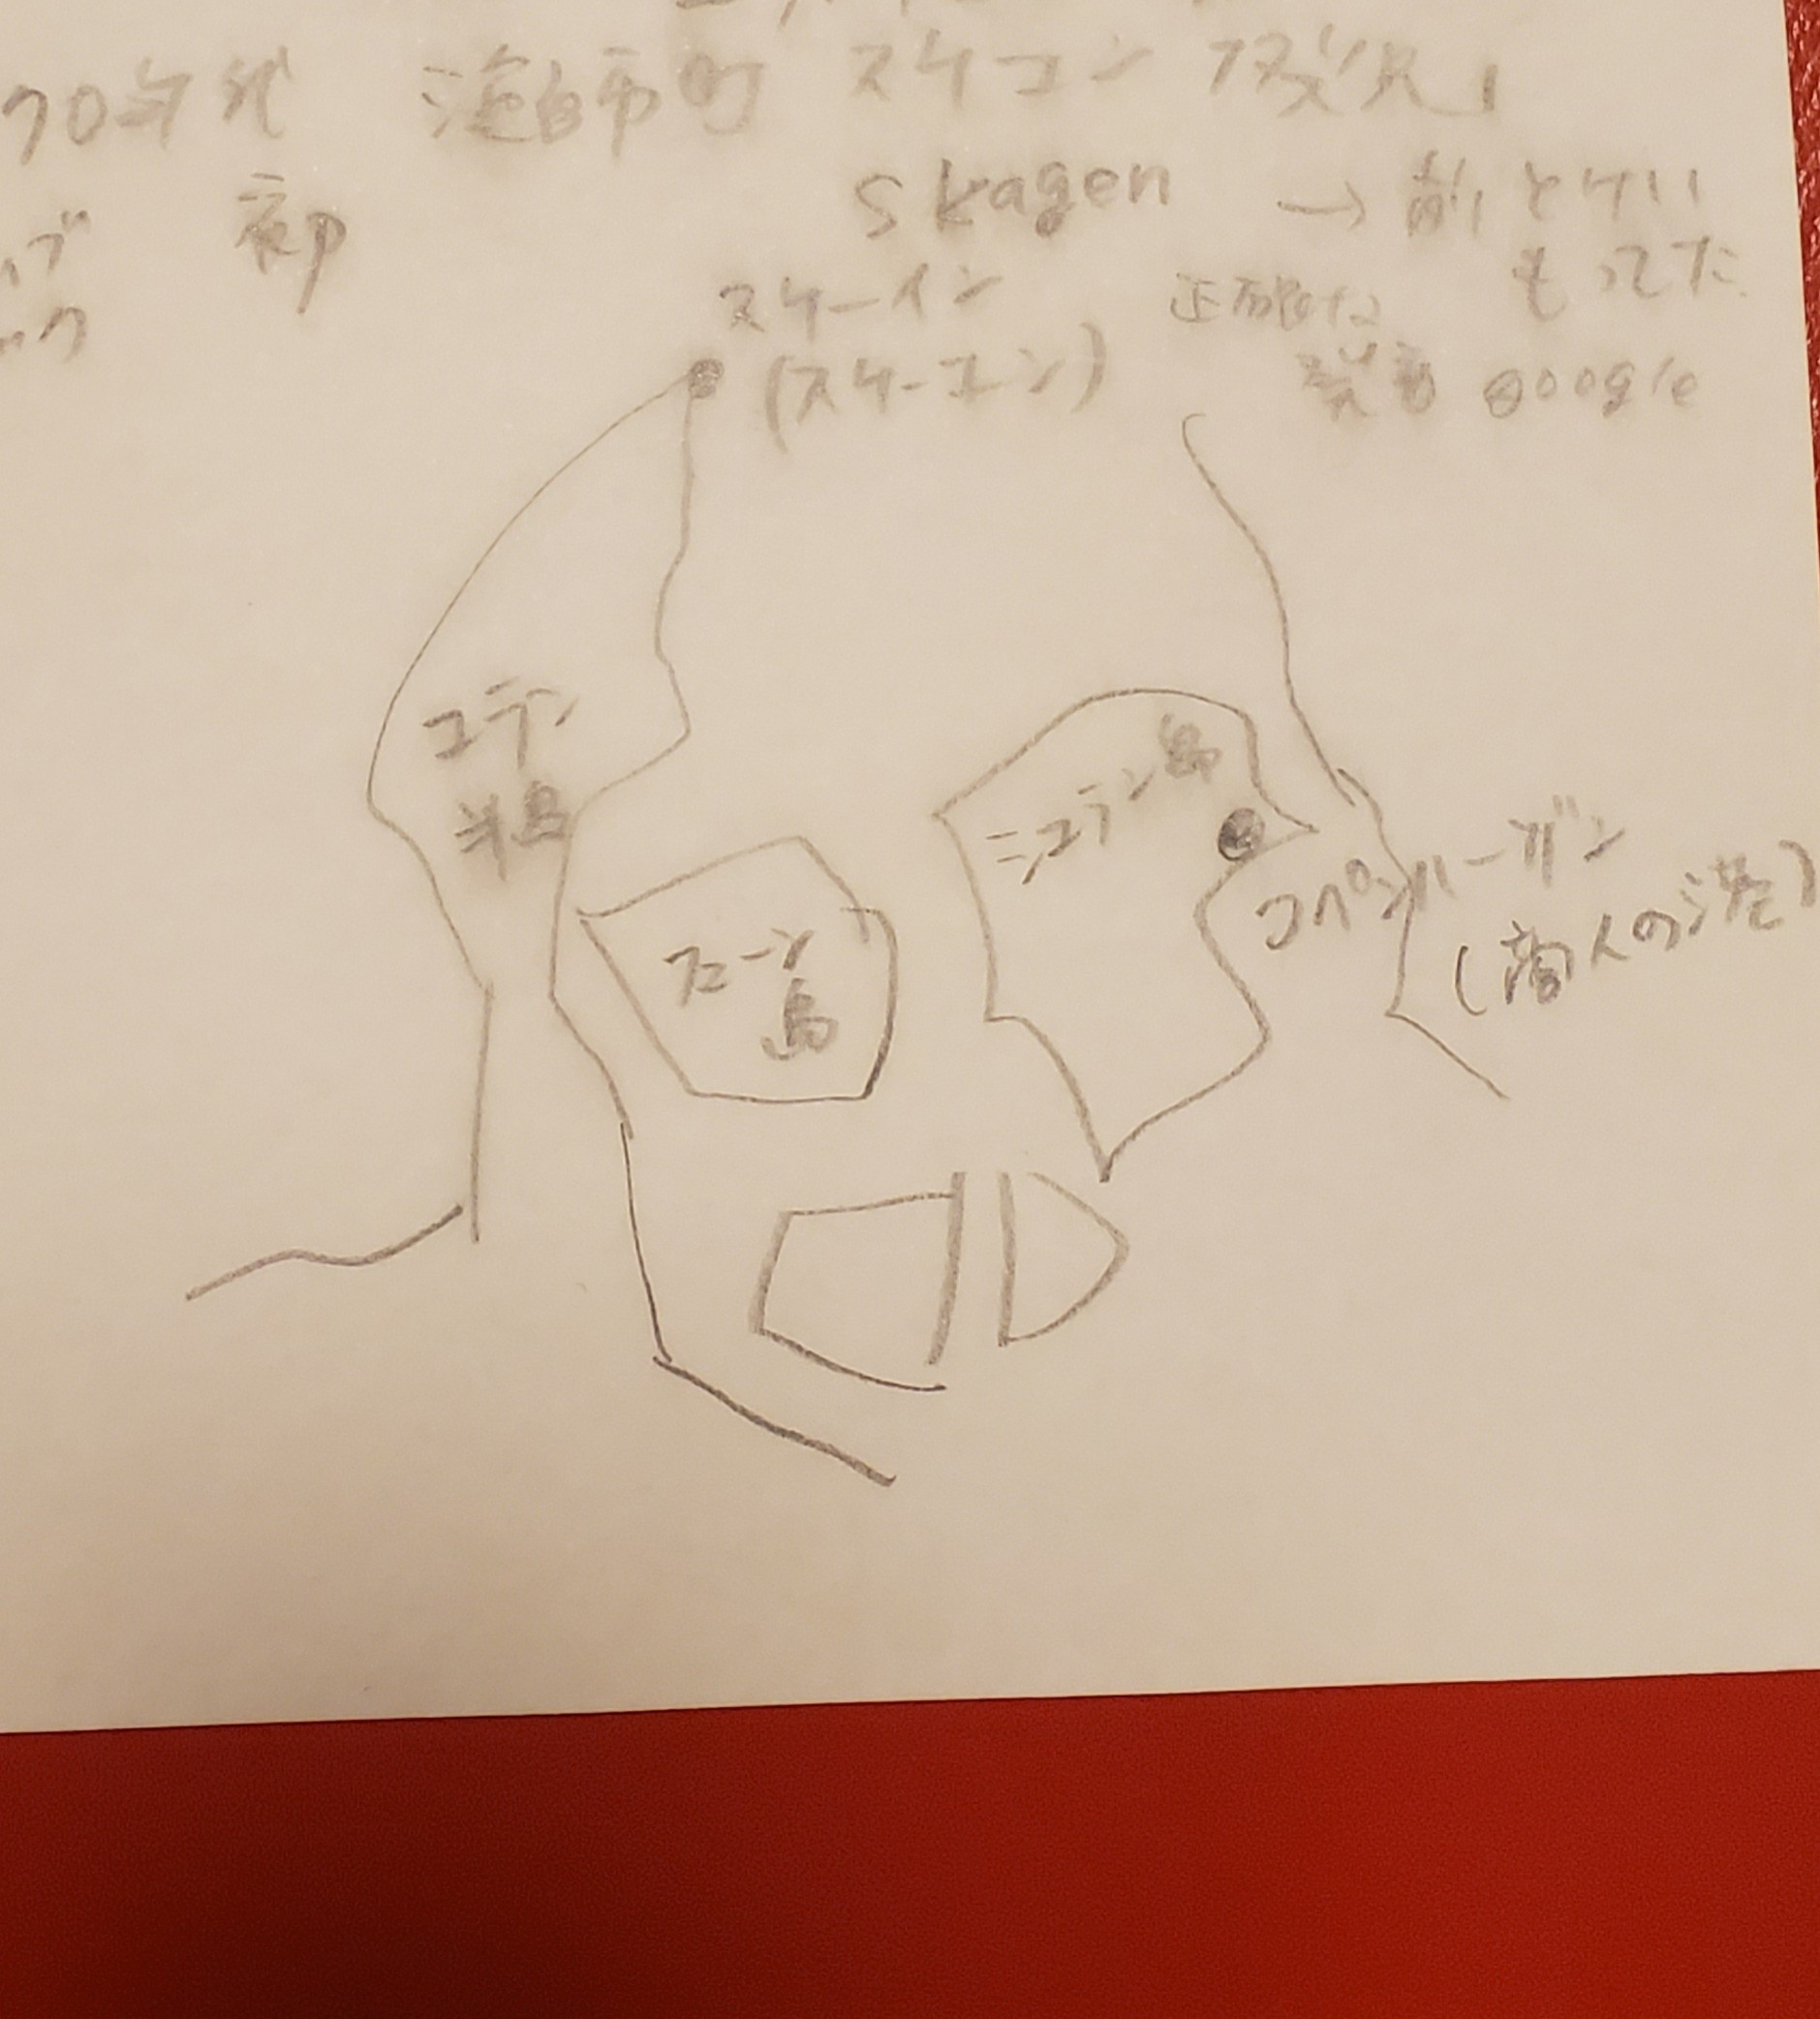 70年代 漁師町 スケエン
Skagen → 前 とけい
もってた
スケーイン 正確な
(スケーエン) 発音 google
ユラン
半島
シェラン島
コペンハーゲン
(商人の港)
フューン
島